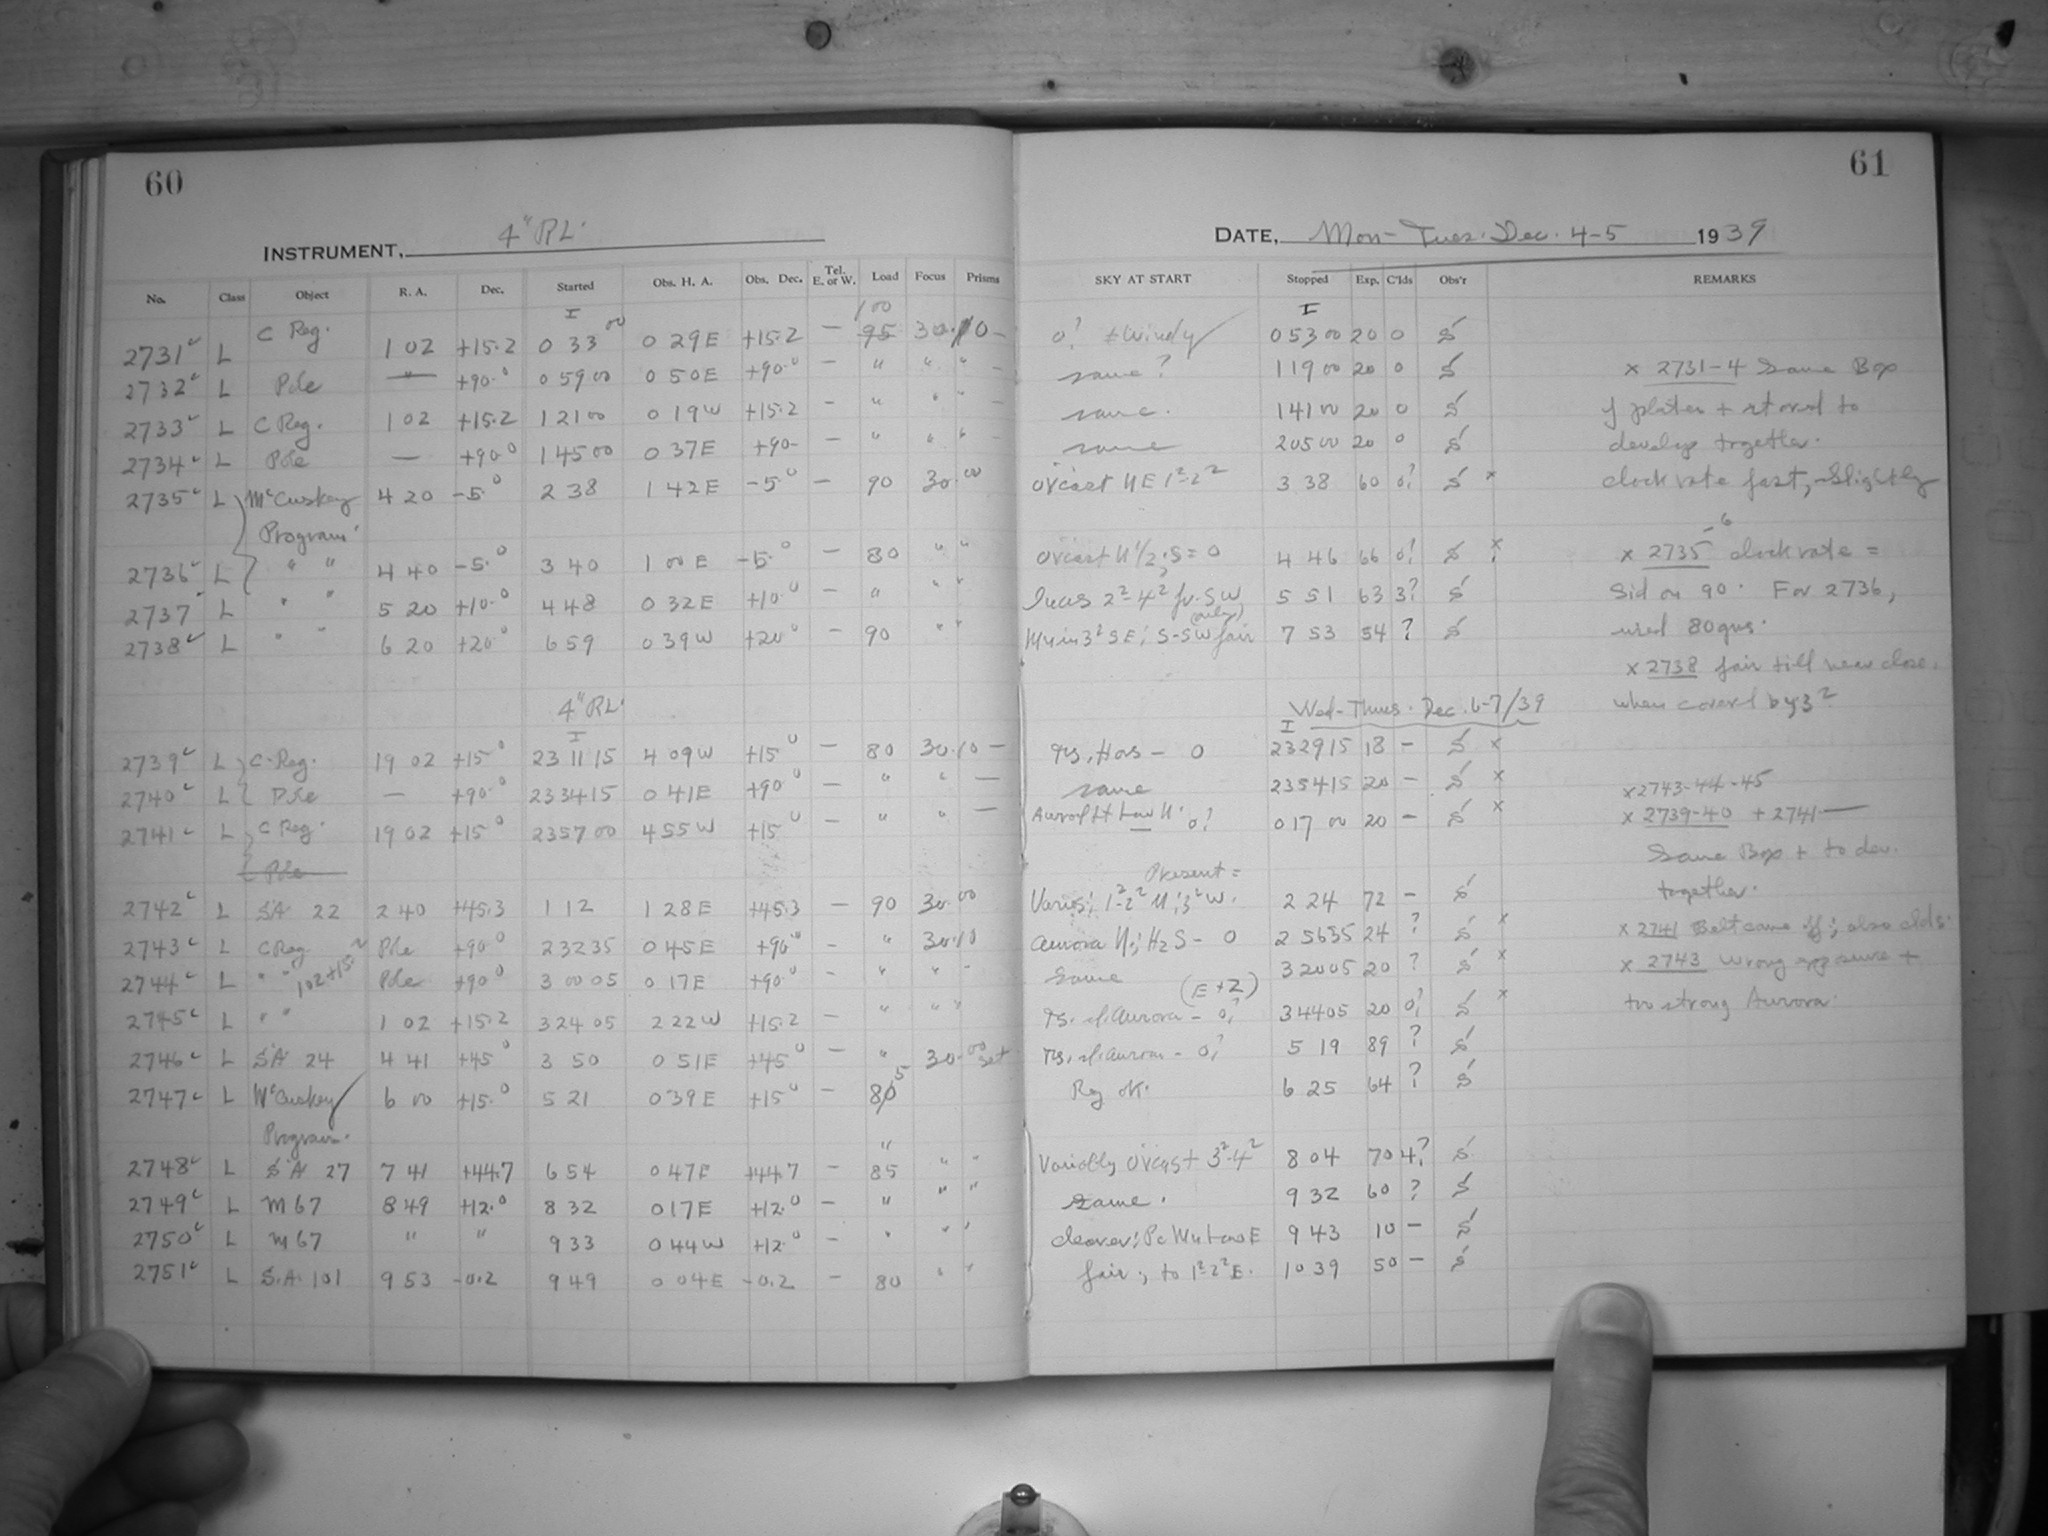 60
4" RL.
INSTRUMENT,
No. Class Object R. A. Dec. Started Obs. H. A. Obs. Dec. Tel. E. or W. Load Focus Prisms
I
100
2731 L C Reg. 1 02 +15.2 0 33 00 0 29 E +15.2 — 95 30.10 —
2732 L Pole — +90.0 0 59 00 0 50 E +90.0 — " " " —
2733 L C Reg. 1 02 +15.2 1 21 00 0 19 W +15.2 — " " " —
2734 L Pole — +90.0 1 45 00 0 37 E +90- — " " " —
2735 L McCuskey 4 20 -5.0 2 38 1 42 E -5.0 — 90 30.00
Program.
2736 L " " 4 40 -5.0 3 40 1 00 E -5.0 — 80 " "
2737 L " " 5 20 +10.0 4 48 0 32 E +10.0 — " " "
2738 L " " 6 20 +20.0 6 59 0 39 W +20.0 — 90 " "
4" RL.
I
2739 L C. Reg. 19 02 +15.0 23 11 15 4 09 W +15.0 — 80 30.10 —
2740 L Pole — +90.0 23 34 15 0 41 E +90.0 — " " —
2741 L C Reg. 19 02 +15.0 23 57 00 4 55 W +15.0 — " " —
Pole
2742 L SA 22 2 40 +45.3 1 12 1 28 E +45.3 — 90 30.00
2743 L C Reg Pole +90.0 2 32 35 0 45 E +90.0 — " 30.10
2744 L " " 1 02 +15.2 Pole +90.0 3 00 05 0 17 E +90.0 — " " "
2745 L " " 1 02 +15.2 3 24 05 2 22 W +15.2 — " " "
2746 L SA 24 4 41 +45.0 3 50 0 51 E +45.0 — " 30.00 set
2747 L McCuskey 6 00 +15.0 5 21 0 39 E +15.0 — 80 5
Program. "
2748 L SA 27 7 41 +44.7 6 54 0 47 E +44.7 — 85 " "
2749 L M 67 8 49 +12.0 8 32 0 17 E +12.0 — " " "
2750 L M 67 " " 9 33 0 44 W +12.0 — " " "
2751 L S.A. 101 9 53 -0.2 9 49 0 04 E -0.2 — 80 " "
61
DATE, Mon- Tues. Dec. 4-5 1939
SKY AT START Stopped Exp. C'lds Obs'r REMARKS
I
0? + Windy 0 53 00 20 0 S
same? 1 19 00 20 0 S x 2731-4 Same Box
same. 1 41 00 20 0 S of plates + stored to
same 2 05 00 20 0 S develop together.
ovcast NE 1²-2² 3 38 60 0? S x clock rate fast, slightly
ovcast N 1/2, S = 0 4 46 66 0? S x x 2735-6 clock rate =
2²-4² SW 5 51 63 3? S Sid on 90. For 2736,
(only)
3² SE; S-SW fair 7 53 54 ? S used 80 gms.
x 2738 fair till near close,
Wed- Thurs. Dec. 6-7/39 when coverd by 3²
I
Ts, Hors - 0 23 29 15 18 - S x
same 23 54 15 20 - S x x 2743-44-45
Low N. 0? 0 17 00 20 - S x x 2739-40 + 2741 —
Same Box + to dev.
Present = together.
Varies; 1²-2² N; 3² W. 2 24 72 - S
Aurora N.; S - 0 2 56 35 24 ? S x x 2741 Belt came off; also clds.
Same 3 20 05 20 ? S x x 2743 wrong exposure +
(E + Z)
Ts. sl. Aurora - 0? 3 44 05 20 0? S x too strong Aurora.
Ts. sl. Aurora - 0? 5 19 89 ? S
Reg ok. 6 25 64 ? S
Variably ovcast 3²-4² 8 04 70 4? S
same. 9 32 60 ? S
clearer; Low E 9 43 10 - S
fair; to 1²-2² E. 10 39 50 - S